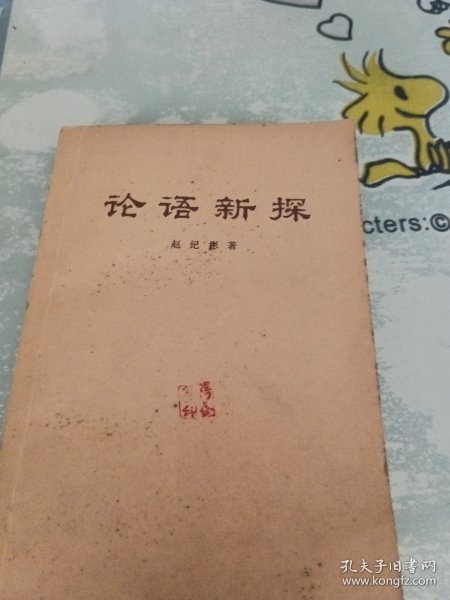 论语新探
赵纪彬著
cters:©
印
孔夫子旧书网
www.kongfz.com